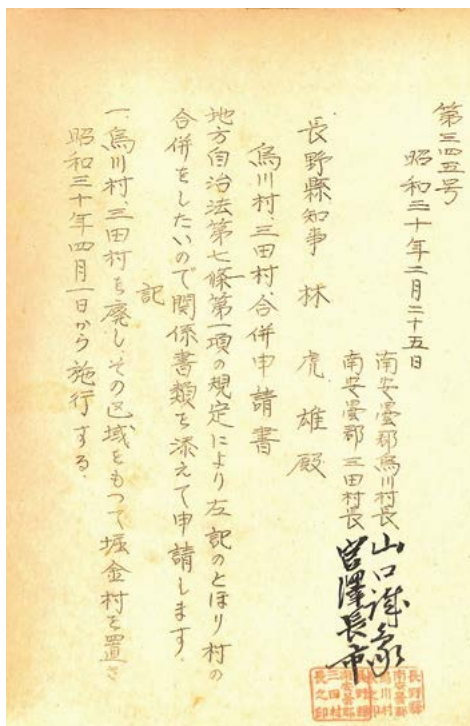 第三四五号
昭和三十年二月二十五日
南安曇郡烏川村長 山口
南安曇郡三田村長 宮澤長市
長野縣知事 林 虎雄殿
烏川村、三田村、合併申請書
地方自治法第七條第一項の規定により左記のとほり村の
合併をしたいので関係書類を添えて申請します。
記
一、烏川村、三田村を廃し、その区域をもつて堀金村を置き
昭和三十年四月一日から施行する。